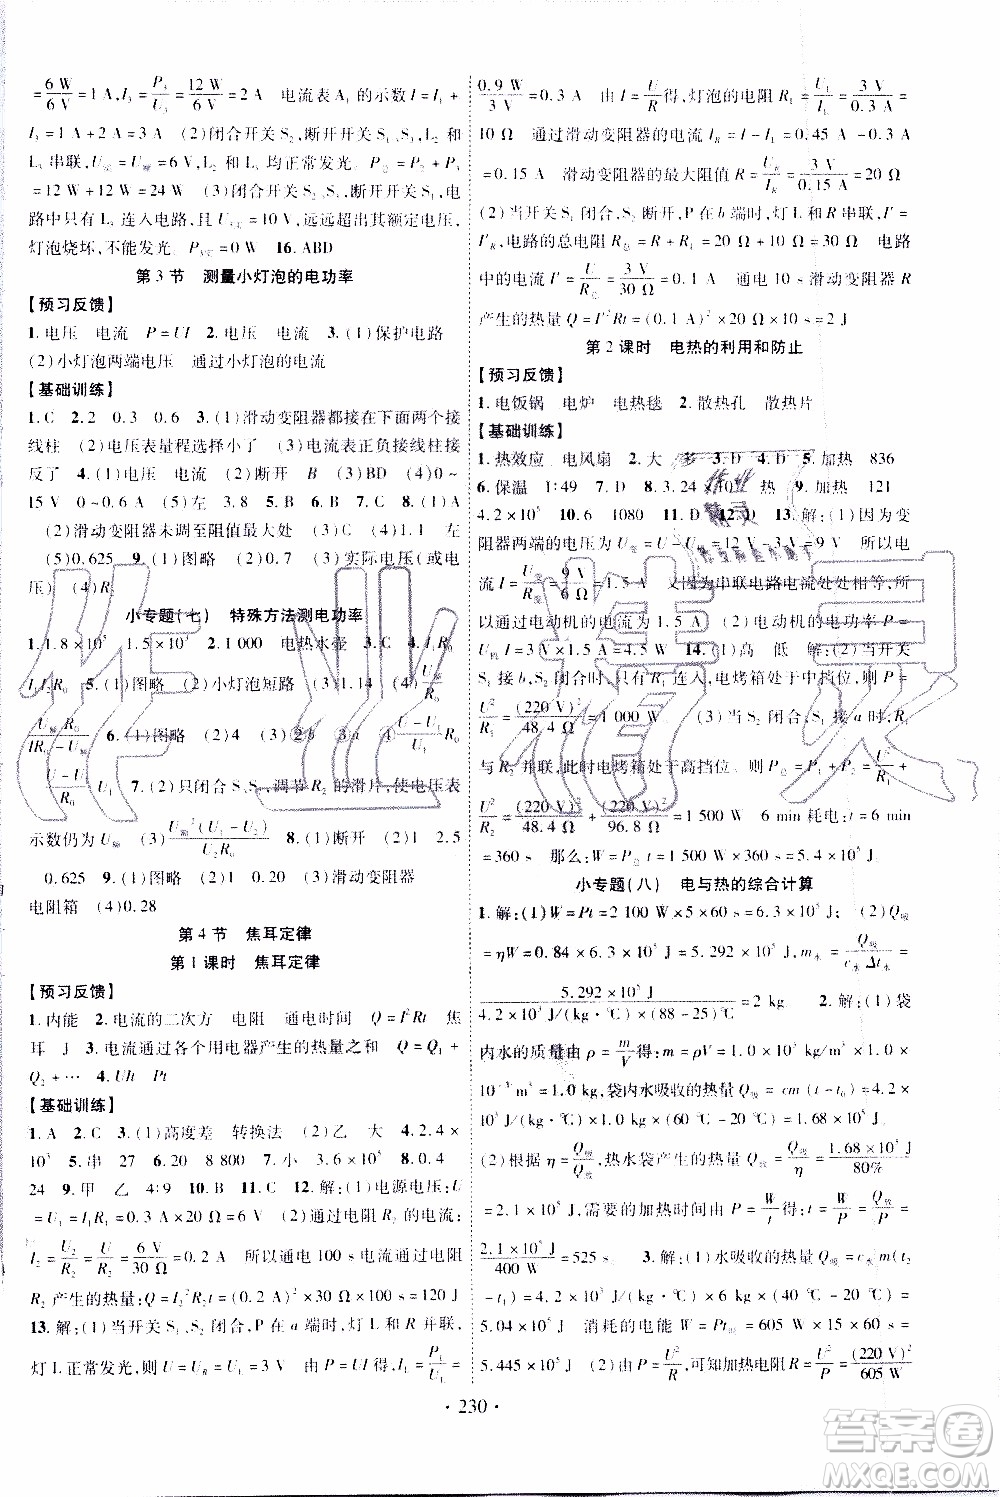 =6 W/6 V=1 A,I₃=P₃/U₃=12 W/6 V=2 A 电流表A₁的示数I=I₁+
I₃=1 A+2 A=3 A (2)闭合开关S₂,断开开关S₁、S₃,L₂和
L₃串联,U总=U=6 V,L₂和L₃均正常发光。P总=P₂+P₃
=12 W+12 W=24 W (3)闭合开关S₃,断开开关S₁、S₂,电
路中只有L₁连入电路,且U实=10 V,远远超出其额定电压,
灯泡烧坏,不能发光。P实=0 W 16.ABD
第3节 测量小灯泡的电功率
【预习反馈】
1.电压 电流 P=UI 2.电压 电流 3.(1)保护电路
(2)小灯泡两端电压 通过小灯泡的电流
【基础训练】
1.C 2.2 0.3 0.6 3.(1)滑动变阻器都接在下面两个接
线柱 (2)电压表量程选择小了 (3)电流表正负接线柱接
反了 4.(1)电压 电流 (2)断开 B (3)BD (4)0~
15 V 0~0.6 A (5)左 3.8 5.C 6.C 7.C 8.(1)A
(2)滑动变阻器未调至阻值最大处 (3)电流 (4)1 左
(5)0.625 9.(1)图略 (2)图略 (3)实际电压(或电
压) (4)R
小专题(七) 特殊方法测电功率
1.1.8×10⁵ 1.5×10⁵ 2.1 000 电热水壶 3.C 4.I₁R₀
I₁I₂R₀ 5.(1)图略 (2)小灯泡短路 (3)1.14 (4)U₁/R₀
U额R₀/IR₀-U额 6.(1)图略 (2)4 (3)2b 3a (4)U-U₁/U₁R₀
U-U额/R₀U额 7.(2)只闭合S、S₁,调节R₂的滑片,使电压表
示数仍为U额 (3)U额²(U₁-U₂)/U₂R₀ 8.(1)断开 (2)1 2.5
0.625 9.(1)图略 (2)1 0.20 (3)滑动变阻器
电阻箱 (4)0.28
第4节 焦耳定律
第1课时 焦耳定律
【预习反馈】
1.内能 2.电流的二次方 电阻 通电时间 Q=I²Rt 焦
耳 J 3.电流通过各个用电器产生的热量之和 Q=Q₁+
Q₂+… 4.UIt Pt
【基础训练】
1.A 2.C 3.(1)高度差 转换法 (2)乙 大 4.2.4×
10³ 5.串 27 6.20 8 800 7.小 3.6×10⁵ 8.0.4
24 9.甲 乙 4:9 10.B 11.C 12.解:(1)电源电压:U
=U₁=I₁R₁=0.6 A×10 Ω=6 V (2)通过R₂的电流:
I₂=U₂/R₂=U/R₂=6 V/30 Ω=0.2 A 所以通电100 s电流通过电阻
R₂产生的热量:Q=I₂²R₂t=(0.2 A)²×30 Ω×100 s=120 J
13.解:(1)当开关S₁、S₂闭合,P在a端时,灯L和R并联,
灯L正常发光,则U=U_R=U_L=3 V 由P=UI得,I_L=P_L/U_L
=0.9 W/3 V=0.3 A 由I=U/R得,灯泡的电阻R_L=U_L/I_L=3 V/0.3 A=
10 Ω 通过滑动变阻器的电流I_R=I-I_L=0.45 A-0.3 A
=0.15 A 滑动变阻器的最大阻值R=U_R/I_R=3 V/0.15 A=20 Ω
(2)当S₁闭合、S₂断开,P在b端时,灯L和R串联,I'=
I'_R,电路的总电阻R总=R_L+R=10 Ω+20 Ω=30 Ω 电路
中的电流I'=U/R总=3 V/30 Ω=0.1 A 通电10 s滑动变阻器R
产生的热量Q=I'²Rt=(0.1 A)²×20 Ω×10 s=2 J
第2课时 电热的利用和防止
【预习反馈】
1.电饭锅 电炉 电热毯 2.散热孔 散热片
【基础训练】
1.热效应 电风扇 2.大 多 3.D 4.D 5.加热 836
6.保温 1:49 7.B 8.3.24×10⁴ 热 9.加热 121
4.2×10⁵ 10.6 1080 11.D 12.D 13.解:(1)因为变
阻器两端的电压为U变=U-U机=12 V-3 V=9 V 所以电
流I=U变/R变=9 V/6 Ω=1.5 A 又因为串联电路电流处处相等,所
以,通过电动机的电流为1.5 A (2)电动机的电功率P=
U机I=3 V×1.5 A=4.5 W 14.(1)高 低 解:(2)当开关
S₁接b、S₂断开时,只有R₁连入,电烤箱处于中挡位,则P₁=
U²/R₁=(220 V)²/48.4 Ω=1 000 W (3)当S₂闭合、S₁接a时,R₁
与R₂并联,此时电烤箱处于高挡位,P总=P₁+P₂=U²/R₁+
U²/R₂=(220 V)²/48.4 Ω+(220 V)²/96.8 Ω=1 500 W 6 min耗电:t=6 min
=360 s 那么:W=P总t=1 500 W×360 s=5.4×10⁵ J
小专题(八) 电与热的综合计算
1.解:(1)W=Pt=2 100 W×5×60 s=6.3×10⁵ J (2)Q吸
=ηW=0.84×6.3×10⁵ J=5.292×10⁵ J m水=Q吸/c水Δt水=
5.292×10⁵ J/4.2×10³ J/(kg·℃)×(88-25)℃=2 kg 2.解:(1)袋
内水的质量由ρ=m/V得:m=ρV=1.0×10³ kg/m³×1 000×
10⁻⁶ m³=1.0 kg,袋内水吸收的热量Q吸=cm(t-t₀)=4.2×
10³ J/(kg·℃)×1.0 kg×(60℃-20℃)=1.68×10⁵ J
(2)根据η=Q吸/Q放得,热水袋产生的热量Q放=Q吸/η=1.68×10⁵ J/80%
=2.1×10⁵ J,需要的加热时间由P=W/t得,t=W/P=Q放/P=
2.1×10⁵ J/400 W=525 s 3.解:(1)水吸收的热量Q吸=c水m(t₂
-t₁)=4.2×10³ J/(kg·℃)×1.5 kg×(100℃-20℃)=
5.04×10⁵ J 消耗的电能W=Pt=605 W×15×60 s=
5.445×10⁵ J (2)由P=U²/R,可知加热电阻R=U²/P=(220 V)²/605 W
·230·
作业精灵
答案圈
MXQE.COM